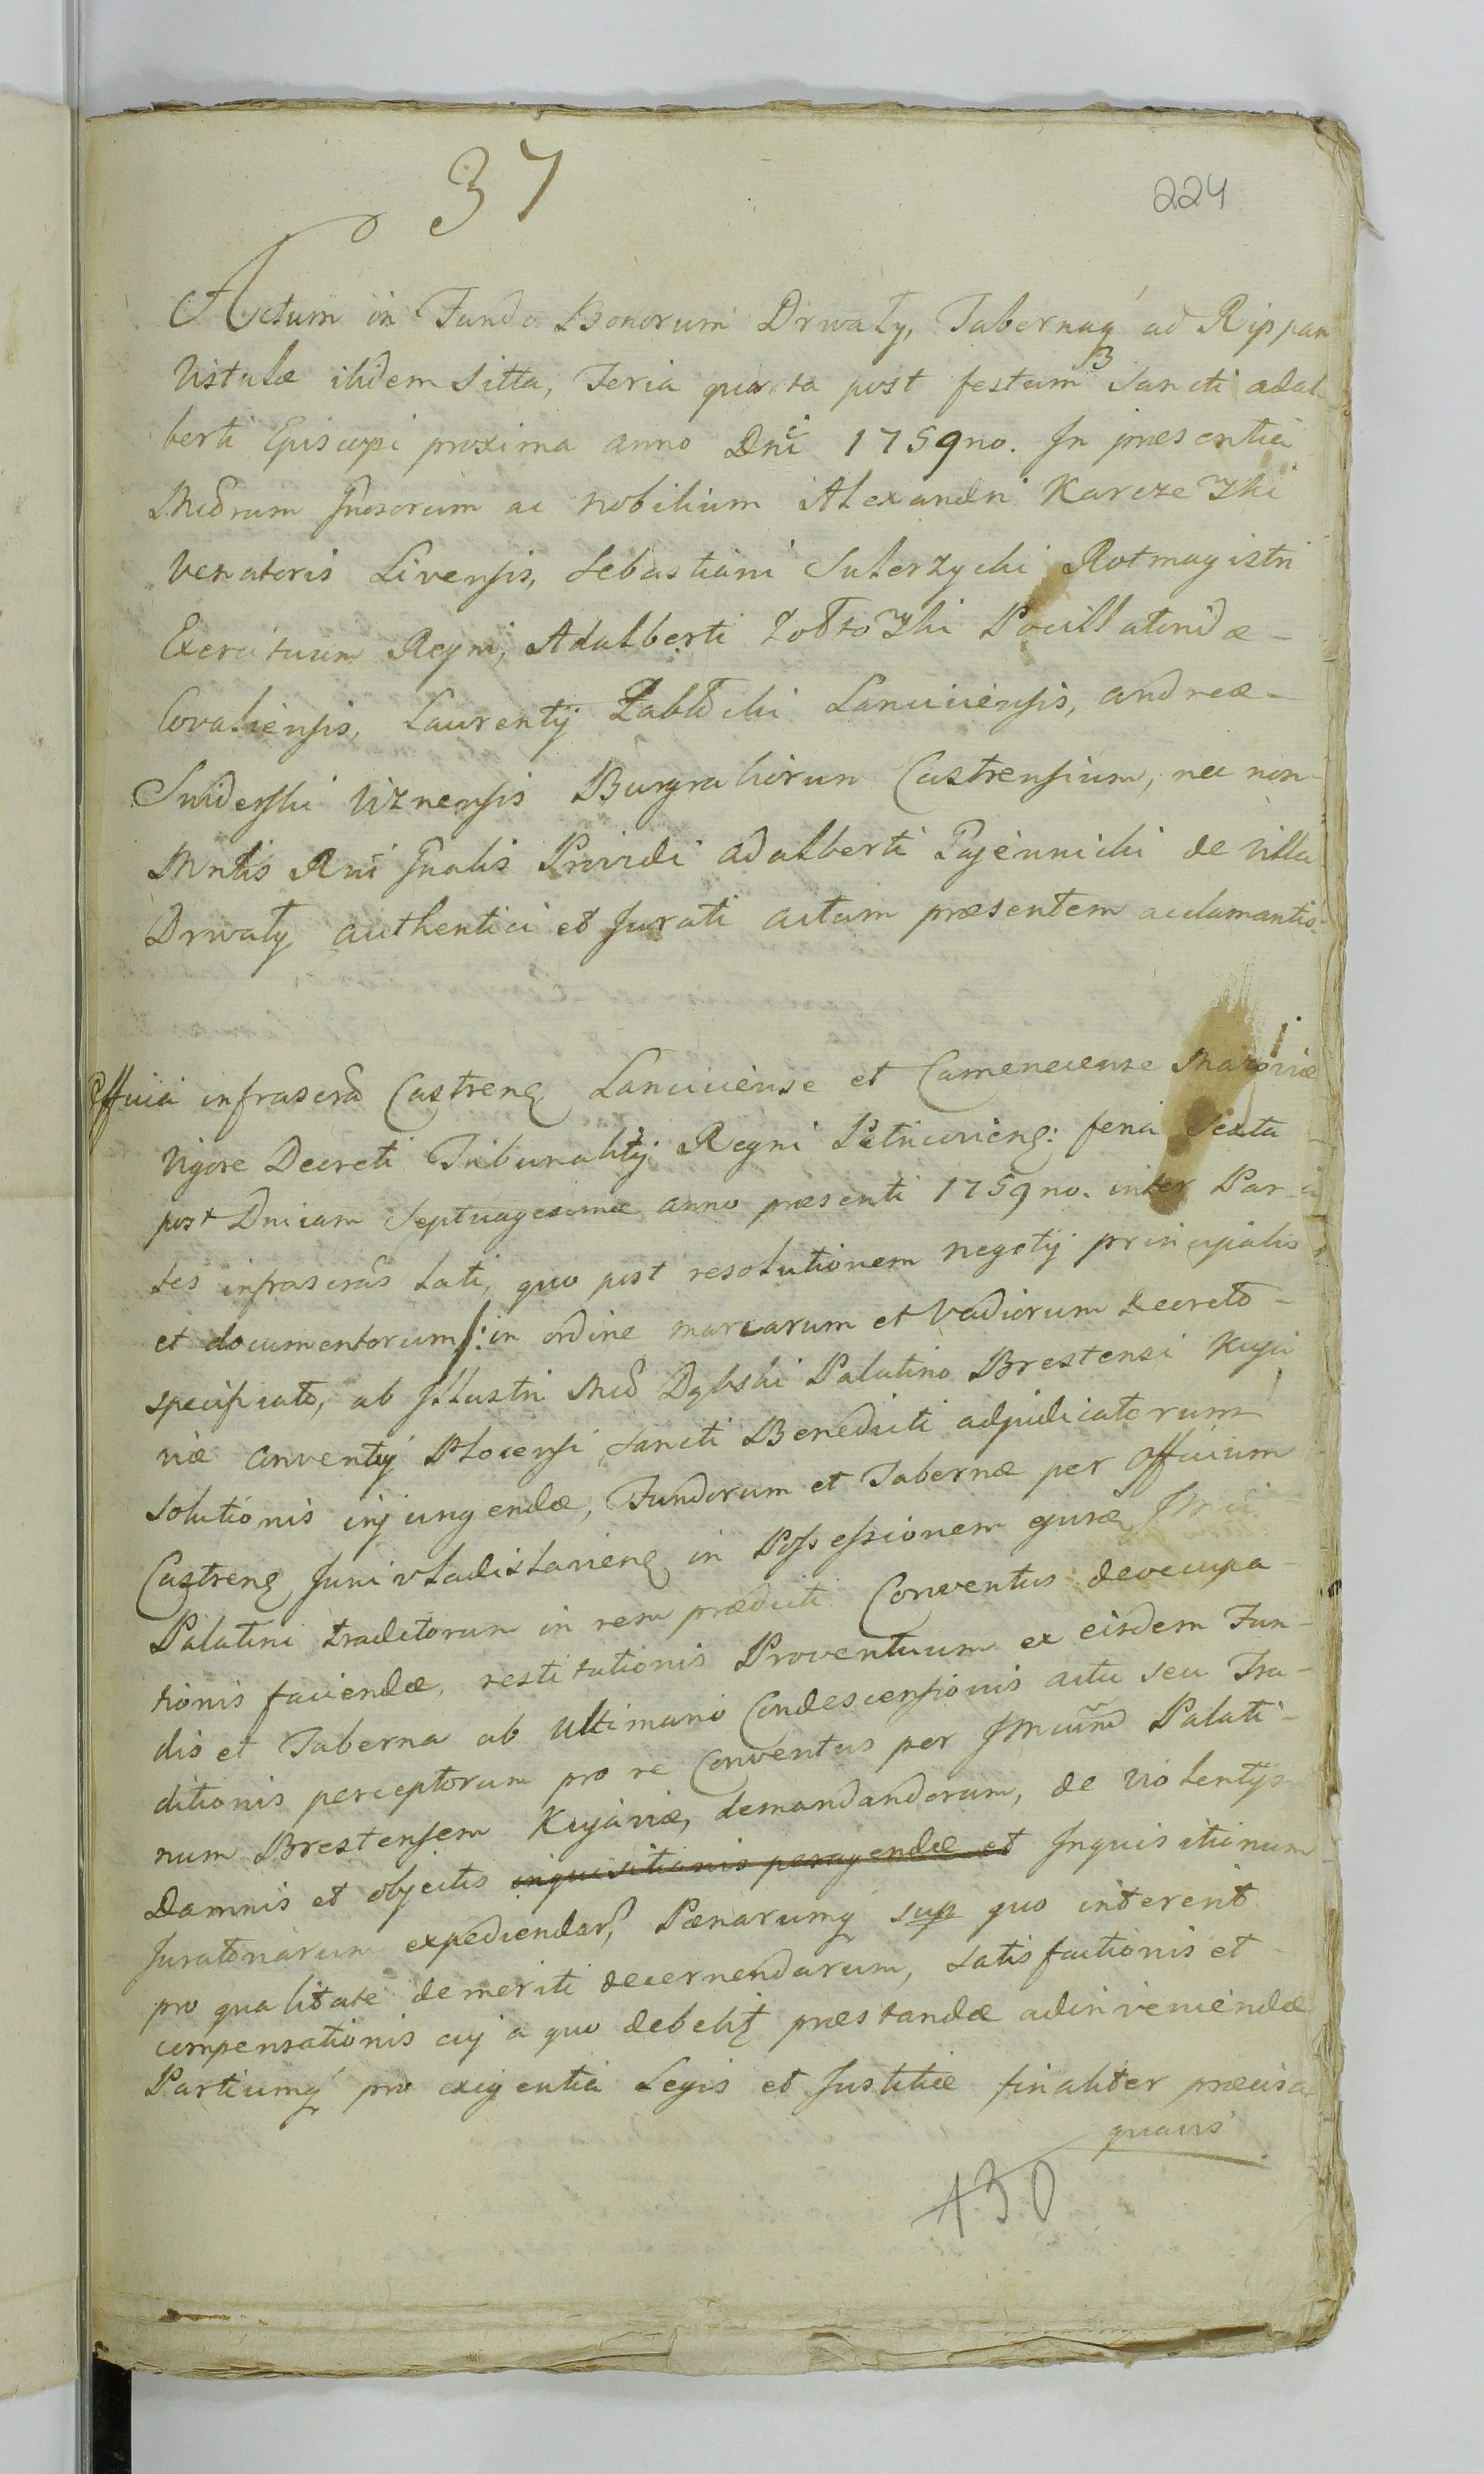 37
224
Actum in Fundo Bonorum Drwały, Tabernaq́ ad Rippam
Vistulæ ibidem sitta, Feria quarta post festum Sancti Adal-
berti Episcopi proxima anno Dni 1759no. In præsentia
Mcorum Gnosorum ac Nobilium Alexandri Karcze
Venatoris Livensis, Sebastiani Sulerzycki Rotmagistri
Exercituum Regni, Adalberti Pocillatoridæ -
Covaliensis, Laurentij Lanciciensis, Andreæ -
Swiderski Viznensis Burgrabiorum Castrensium, nec non
Mntis Rni Gnalis Providi Adalberti de Villa
Drwały authentici et Jurati actum præsentem acclamantis.
Officia infrascra Castrenς Lanciciense et Camenecense Mazoviæ
Vigore Decreti Tribunalitij Regni Petricovienς: feria Sexta
post Dnicam Septuagesimæ anno præsenti 1759no. inter Par-
tes infrascras lati, quo post resolutionem negotij principalis
et documentorum /: in ordine marcarum et Vadiorum decreto -
specificato, ab Illustri Mco Dąbski Palatino Brestensi Kuja
viæ Conventuj Plocensi Sancti Benedicti adjudicatorum
solutionis injungendæ, Fundorum et Tabernæ per Officium
Castrenς Junivladislavienς in Possessionem ejusđ
Palatini traditorum in rem prædicti Conventus deoccupa-
tionis faciendæ, restitutionis Proventuum ex eisdem Fun-
dis et Taberna ab ultimario Condescensionis actu seu Tra-
ditionis perceptorum pro re Conventus per Palati-
num Brestensem Kujaviæ, demandandorum, de Violentijs
Damnis et objectis inquisitionis peragendæ et Inquisitionum
Juratoriarum expediendar, Pænarumq́ sup quo intererit
pro qualitate demeriti decernendarum, satisfactionis et
compensationis cuj a quo debebit præstandæ adinveniendæ
Partiumq́ pro exigentia Legis et Justitiæ finaliter præcisa
quavis
130